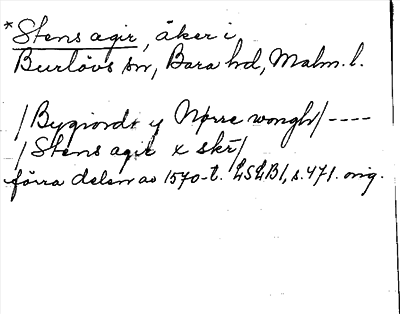 *Stens agir, åker i
Burlövs sn, Bara hd, Malm. l.
/Bygiordt y Nørre wongh/----
/Stens agir x skr/
förra delen av 1570-t. LSLB1, s. 471. orig.